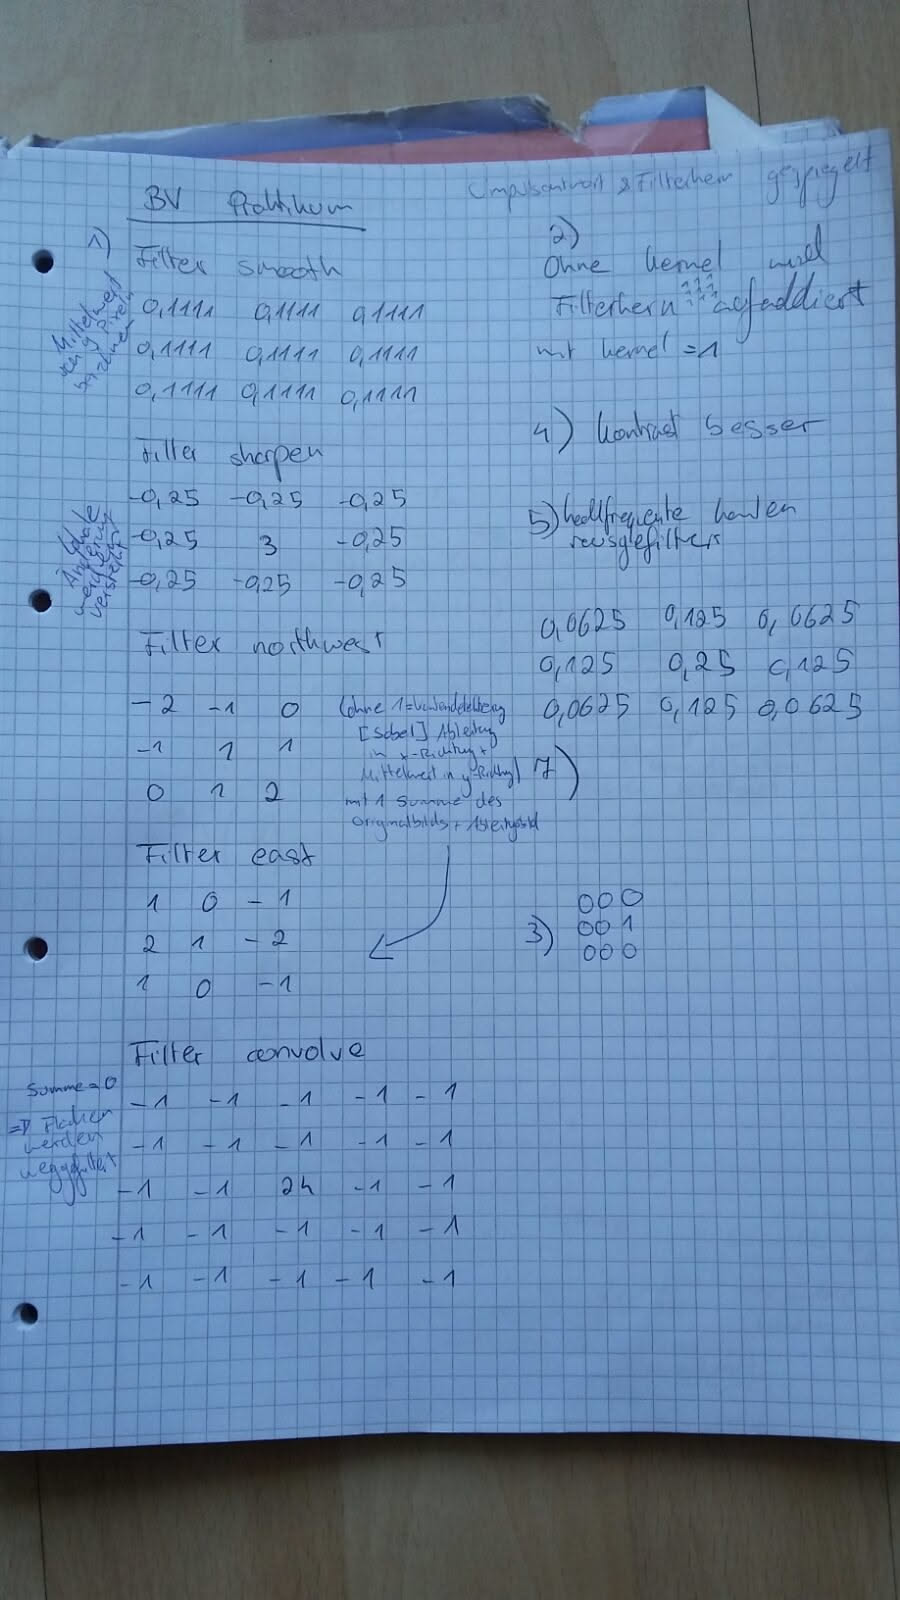 BV Praktikum
Impulsantwort & Filterkern gespiegelt
1)
Filter smooth
Mittelwert
von 9 Pixeln
0,1111 0,1111 0,1111
0,1111 0,1111 0,1111
0,1111 0,1111 0,1111
Filter sharpen
lokale
verstärkt
-0,25 -0,25 -0,25
-0,25 3 -0,25
-0,25 -0,25 -0,25
Filter northwest
-2 -1 0
-1 1 1
0 1 2
(ohne 1 =
[Sobel] Ableitung
in x-Richtung +
Mittelwert in y-Richtung)
mit 1 Summe des
Originalbilds + Ableitungsbild
Filter east
1 0 -1
2 1 -2
1 0 -1
Filter convolve
Summe = 0
=> Flächen
werden
weggefiltert
-1 -1 -1 -1 -1
-1 -1 -1 -1 -1
-1 -1 24 -1 -1
-1 -1 -1 -1 -1
-1 -1 -1 -1 -1
2)
Ohne kernel wird
Filterkern 111 111 111 aufaddiert
mit kernel = 1
4) Kontrast besser
5) hochfrequente Kanten
rausgefiltert
0,0625 0,125 0,0625
0,125 0,25 0,125
0,0625 0,125 0,0625
7)
3)
000
001
000